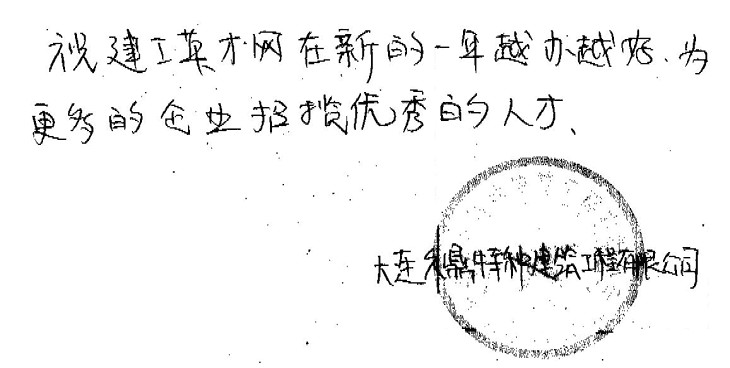 祝建工英才网在新的一年越办越好、为
更多的企业招揽优秀的人才、
大连久鼎特种建筑工程有限公司